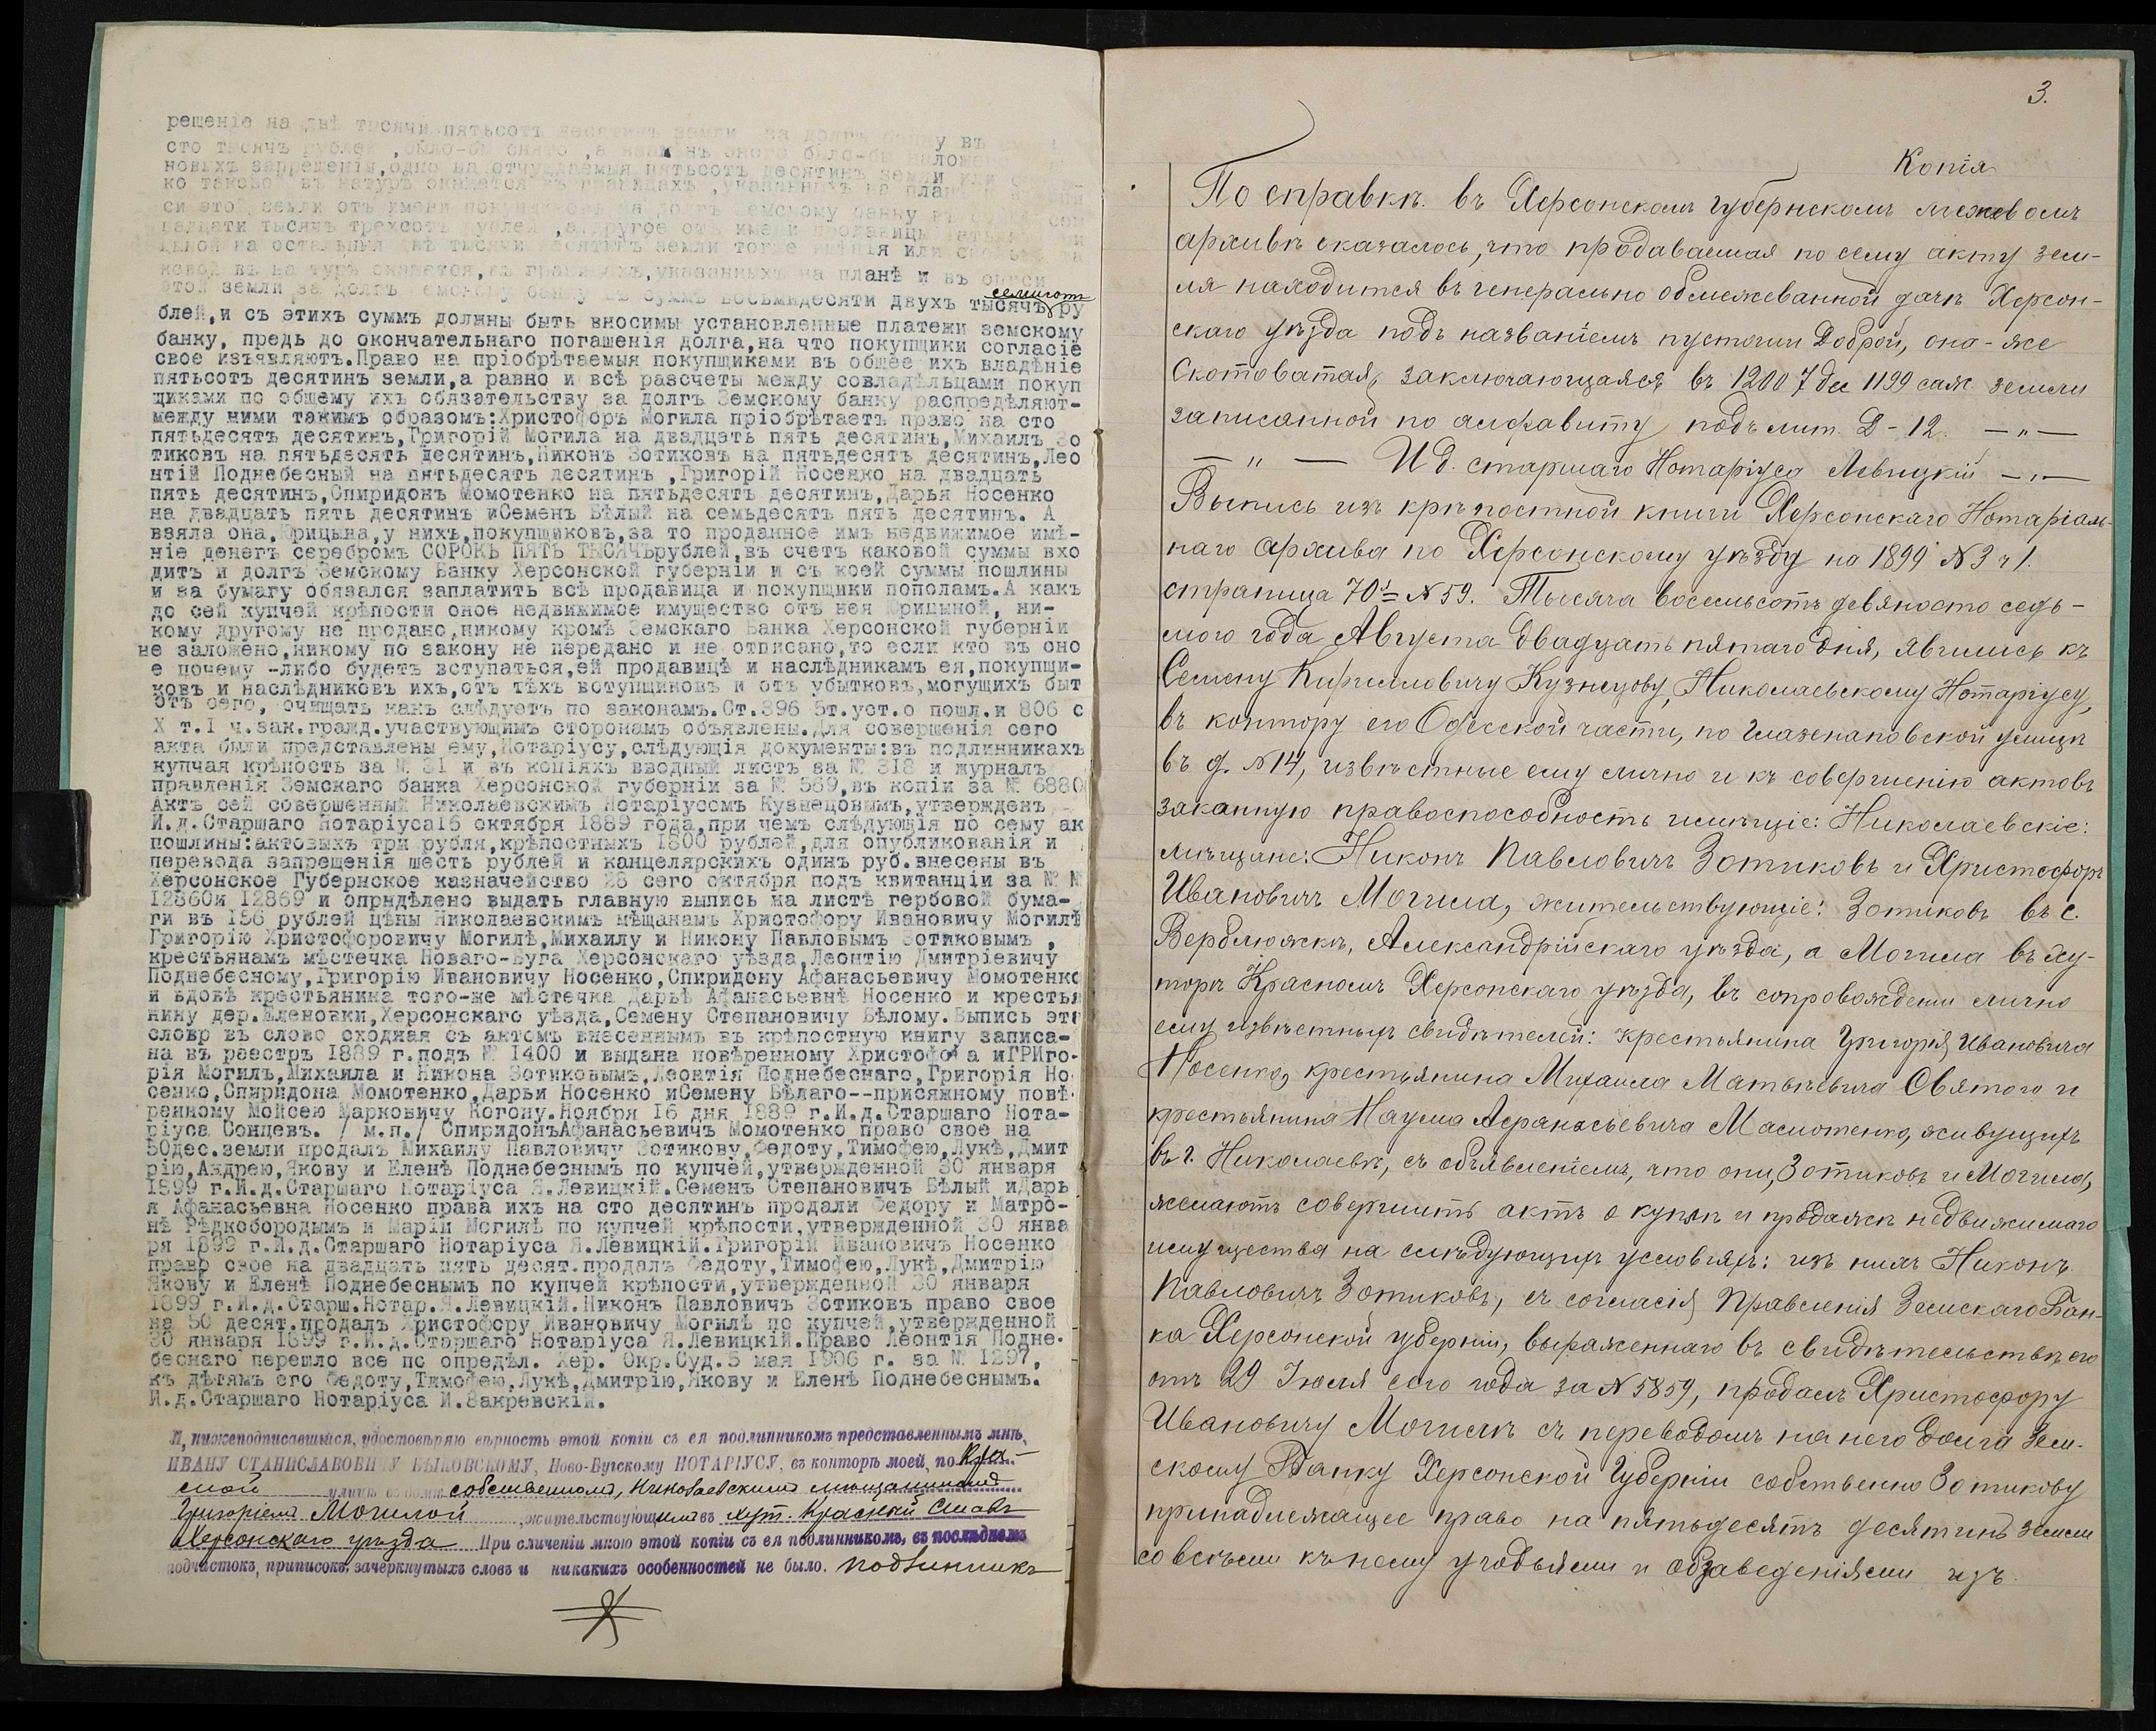 рещеніе на двѣ тысячи пятьсотъ десятинъ земли за долгъ банку въ
сто тысячъ рублей, было-бы снято, а взамѣнъ оного было-бы наложено
новыхъ запрещенія, одно на отчуждаемыя пятьсотъ десятинъ земли или
ко таковой въ натурѣ окажется въ границахъ, указанныхъ на планѣ
си этой земли отъ имени покупщиковъ за долгъ Земскому банку въ
тысячъ трехсотъ рублей, а другое отъ имени продавицы
на остальныя двѣ тысячи десятинъ земли того имѣнія или
ковой въ натурѣ окажется, въ границахъ, указанныхъ на планѣ и въ описи
этой земли за долгъ Земскому банку въ суммѣ восьмидесяти двухъ тысячъ семисотъ ру
блей, и съ этихъ суммъ должны быть вносимы установленные платежи земскому
банку, предь до окончательнаго погашенія долга, на что покупщики согласіе
свое изъявляютъ. Право на пріобрѣтаемыя покупщиками въ общее ихъ владѣніе
пятьсотъ десятинъ земли, а равно и всѣ разсчеты между совладѣльцами покуп
щиками по общему ихъ обязательству за долгъ Земскому банку распредѣляют-
между ними такимъ образомъ: Христофоръ Могила пріобрѣтаетъ право на сто
пятьдесятъ десятинъ, Григорій Могила на двадцать пять десятинъ, Михаилъ Зо
тиковъ на пятьдесятъ десятинъ, Никонъ Зотиковъ на пятьдесятъ десятинъ, Лео
нтій Поднебесный на пятьдесятъ десятинъ, Григорій Носенко на двадцать
пять десятинъ, Спиридонъ Момотенко на пятьдесятъ десятинъ, Дарья Носенко
на двадцать пять десятинъ иСеменъ Бѣлый на семьдесятъ пять десятинъ. А
взяла она, Юрицына, у нихъ, покупщиковъ, за то проданное имъ недвижимое имѣ-
ніе денегъ серебромъ СОРОКЪ ПЯТЬ ТЫСЯЧЪрублей, въ счетъ каковой суммы вхо
дитъ и долгъ Земскому Банку Херсонской губерніи и съ коей суммы пошлины
и за бумагу обязался заплатить всѣ продавица и покупщики пополамъ. А какъ
до сей купчей крѣпости оное недвижимое имущество отъ нея Юрицыной, ни-
кому другому не продано, никому кромѣ Земскаго Банка Херсонской губерніи
не заложено, никому по закону не передано и не отписано, то если кто въ оно
е почему -либо будетъ вступаться, ей продавицѣ и наслѣдникамъ ея, покупщи-
ковъ и наслѣдниковъ ихъ, отъ тѣхъ вступщиковъ и отъ убытковъ, могущихъ быт
отъ сего, очищать какъ слѣдуетъ по законамъ. Ст. 396 5т. уст. о пошл. и 806 с
X т. I ч. зак. гражд. участвующимъ сторонамъ объявлены. Для совершенія сего
акта были представлены ему, Нотаріусу, слѣдующія документы: въ подлинникахъ
купчая крѣпость за № 31 и въ копіяхъ вводный листъ за № 318 и журналъ
правленія Земскаго банка Херсонской губерніи за № 569, въ копіи за № 6880
Актъ сей совершенный Николаевскимъ Нотаріусомъ Кузнецовымъ, утвержденъ
И.д. Старшаго Нотаріуса16 октября 1889 года, при чемъ слѣдующія по сему ак
пошлины: актовыхъ три рубля, крѣпостныхъ 1800 рублей, для опубликованія и
перевода запрещенія шесть рублей и канцелярскихъ одинъ руб. внесены въ
Херсонское Губернское казначейство 28 сего октября подъ квитанціи за № №
12860и 12869 и опрндѣлено выдать главную выпись на листѣ гербовой бума-
ги въ 156 рублей цѣны Николаевскимъ мѣщанамъ Христофору Ивановичу Могилѣ
Григорію Христофоровичу Могилѣ, Михаилу и Никону Павловымъ Зотиковымъ,
крестьянамъ мѣстечка Новаго-Буга Херсонскаго уѣзда, Леонтію Дмитріевичу
Поднебесному, Григорію Ивановичу Носенко, Спиридону Афанасьевичу Момотенко
и вдовѣ крестьянина того-же мѣстечка Дарьѣ Афанасьевнѣ Носенко и крестья
нину дер. Еленовки, Херсонскаго уѣзда, Семену Степановичу Бѣлому. Выпись эта
словр въ слово сходная съ актомъ внесеннымъ въ крѣпостную книгу записа-
на въ реестръ 1889 г. подъ № 1400 и выдана повѣренному Христофора иГРИго-
рія Могилъ, Михаила и Никона Зотиковымъ, Леонтія Поднебеснаго, Григорія Но
сенко, Спиридона Момотенко, Дарьи Носенко иСемену Бѣлаго--присяжному повѣ-
ренному Мойсею Марковичу Когону. Ноября 16 дня 1889 г. И.д. Старшаго Нота-
ріуса Сонцевъ. / м.п./ СпиридонъАфанасьевичъ Момотенко право свое на
50дес. земли продалъ Михаилу Павловичу Зотикову, Федоту, Тимофею, Лукѣ, Дмит
рію, Андрею, Якову и Еленѣ Поднебеснымъ по купчей, утвержденной 30 января
1899 г. И.д. Старшаго Нотаріуса Я. Левицкій. Семенъ Степановичъ Бѣлый иДарь
я Афанасьевна Носенко права ихъ на сто десятинъ продали Федору и Матро-
нѣ Рѣдкобородымъ и Маріи Могилѣ по купчей крѣпости, утвержденной 30 янва
ря 1899 г. И.д. Старшаго Нотаріуса Я. Левицкій. Григорій Ивановичъ Носенко
право свое на двадцать пять десят. продалъ Федоту, Тимофею, Лукѣ, Дмитрію
Якову и Еленѣ Поднебеснымъ по купчей крѣпости, утвержденной 30 января
1899 г. И.д. Старш. Нотар. Я. Левицкій. Никонъ Павловичъ Зотиковъ право свое
на 50 десят. продалъ Христофору Ивановичу Могилѣ по купчей, утвержденной
30 января 1899 г. И.д. Старшаго Нотаріуса Я. Левицкій. Право Леонтія Подне-
беснаго перешло все по опредѣл. Хер. Окр. Суд. 5 мая 1906 г. за № 1297,
къ дѣтямъ его Федоту, Тимофею, Лукѣ, Дмитрію, Якову и Еленѣ Поднебеснымъ.
И.д. Старшаго Нотаріуса И. Закревскій.
Я, нижеподписавшійся, удостовѣряю вѣрность этой копіи съ ея подлинникомъ представленнымъ мнѣ,
ИВАНУ СТАНИСЛАВОВИЧУ БЫКОВСКОМУ, Ново-Бугскому НОТАРІУСУ, въ конторѣ моей, по Кра-
сной улицѣ въ домѣ собственномъ, Николаевскимъ мѣщаниномъ
Григоріемъ Могилой, жительствующимъ въ хут. Красный Ставъ
Херсонскаго уѣзда При сличеніи мною этой копіи съ ея подлинникомъ, въ послѣднемъ
подчистокъ, приписокъ, зачеркнутыхъ словъ и никакихъ особенностей не было. Подлинникъ
3.
Копія
По справкѣ въ Херсонскомъ губернскомъ межевомъ
архивѣ оказалось, что продаваемая по сему акту зем-
ля находится въ генерально обмежеванной дачѣ Херсон-
скаго уѣзда подъ названіемъ пустоши Доброй, она-же
Скотоватая, заключающаяся въ 12007 дес 1199 саж. земли
записанной по алфавиту подъ лит. Д-12. — „ —
— „ — И.д. старшаго Нотаріуса Левицкій — „ —
Выпись изъ крѣпостной книги Херсонскаго Нотаріаль-
наго Архива по Херсонскому уѣзду на 1899 № 3 ч 1.
страница 70 № 59. Тысяча восемьсотъ девяносто седь-
мого года Августа двадцать пятаго дня, явились къ
Семену Кирилловичу Кузнецову, Николаевскому Нотаріусу,
въ контору его Одесской части, по Глазенаповской улицѣ
въ д. № 14, извѣстные ему лично и къ совершенію актовъ
законную правоспособность имѣющіе: Николаевскіе:
мѣщане: Никонъ Павловичъ Зотиковъ и Христофоръ
Ивановичъ Могила, жительствующіе: Зотиковъ въ с.
Верблюжкѣ, Александрійскаго уѣзда, а Могила въ ху-
торѣ Красномъ Херсонскаго уѣзда, въ сопровожденіи лично
ему извѣстныхъ свидѣтелей: крестьянина Григорія Ивановича
Носенко, крестьянина Михаила Матвѣевича Святого и
крестьянина Наума Афанасьевича Мамотенко, живущихъ
въ г. Николаевѣ, съ объявленіемъ, что они, Зотиковъ и Могила,
желаютъ совершить актъ о куплѣ и продажѣ недвижимаго
имущества на слѣдующихъ условіяхъ: изъ нихъ Никонъ
Павловичъ Зотиковъ, съ согласія Правленія Земскаго Бан-
ка Херсонской губерніи, выраженнаго въ свидѣтельствѣ его
отъ 29 Іюля сего года за № 5859, продалъ Христофору
Ивановичу Могилѣ съ переводомъ на него долга Зем-
скому Банку Херсонской Губерніи собственно Зотикову
принадлежащее право на пятьдесятъ десятинъ земли
со всѣми къ нему угодьями и обзаведеніями изъ